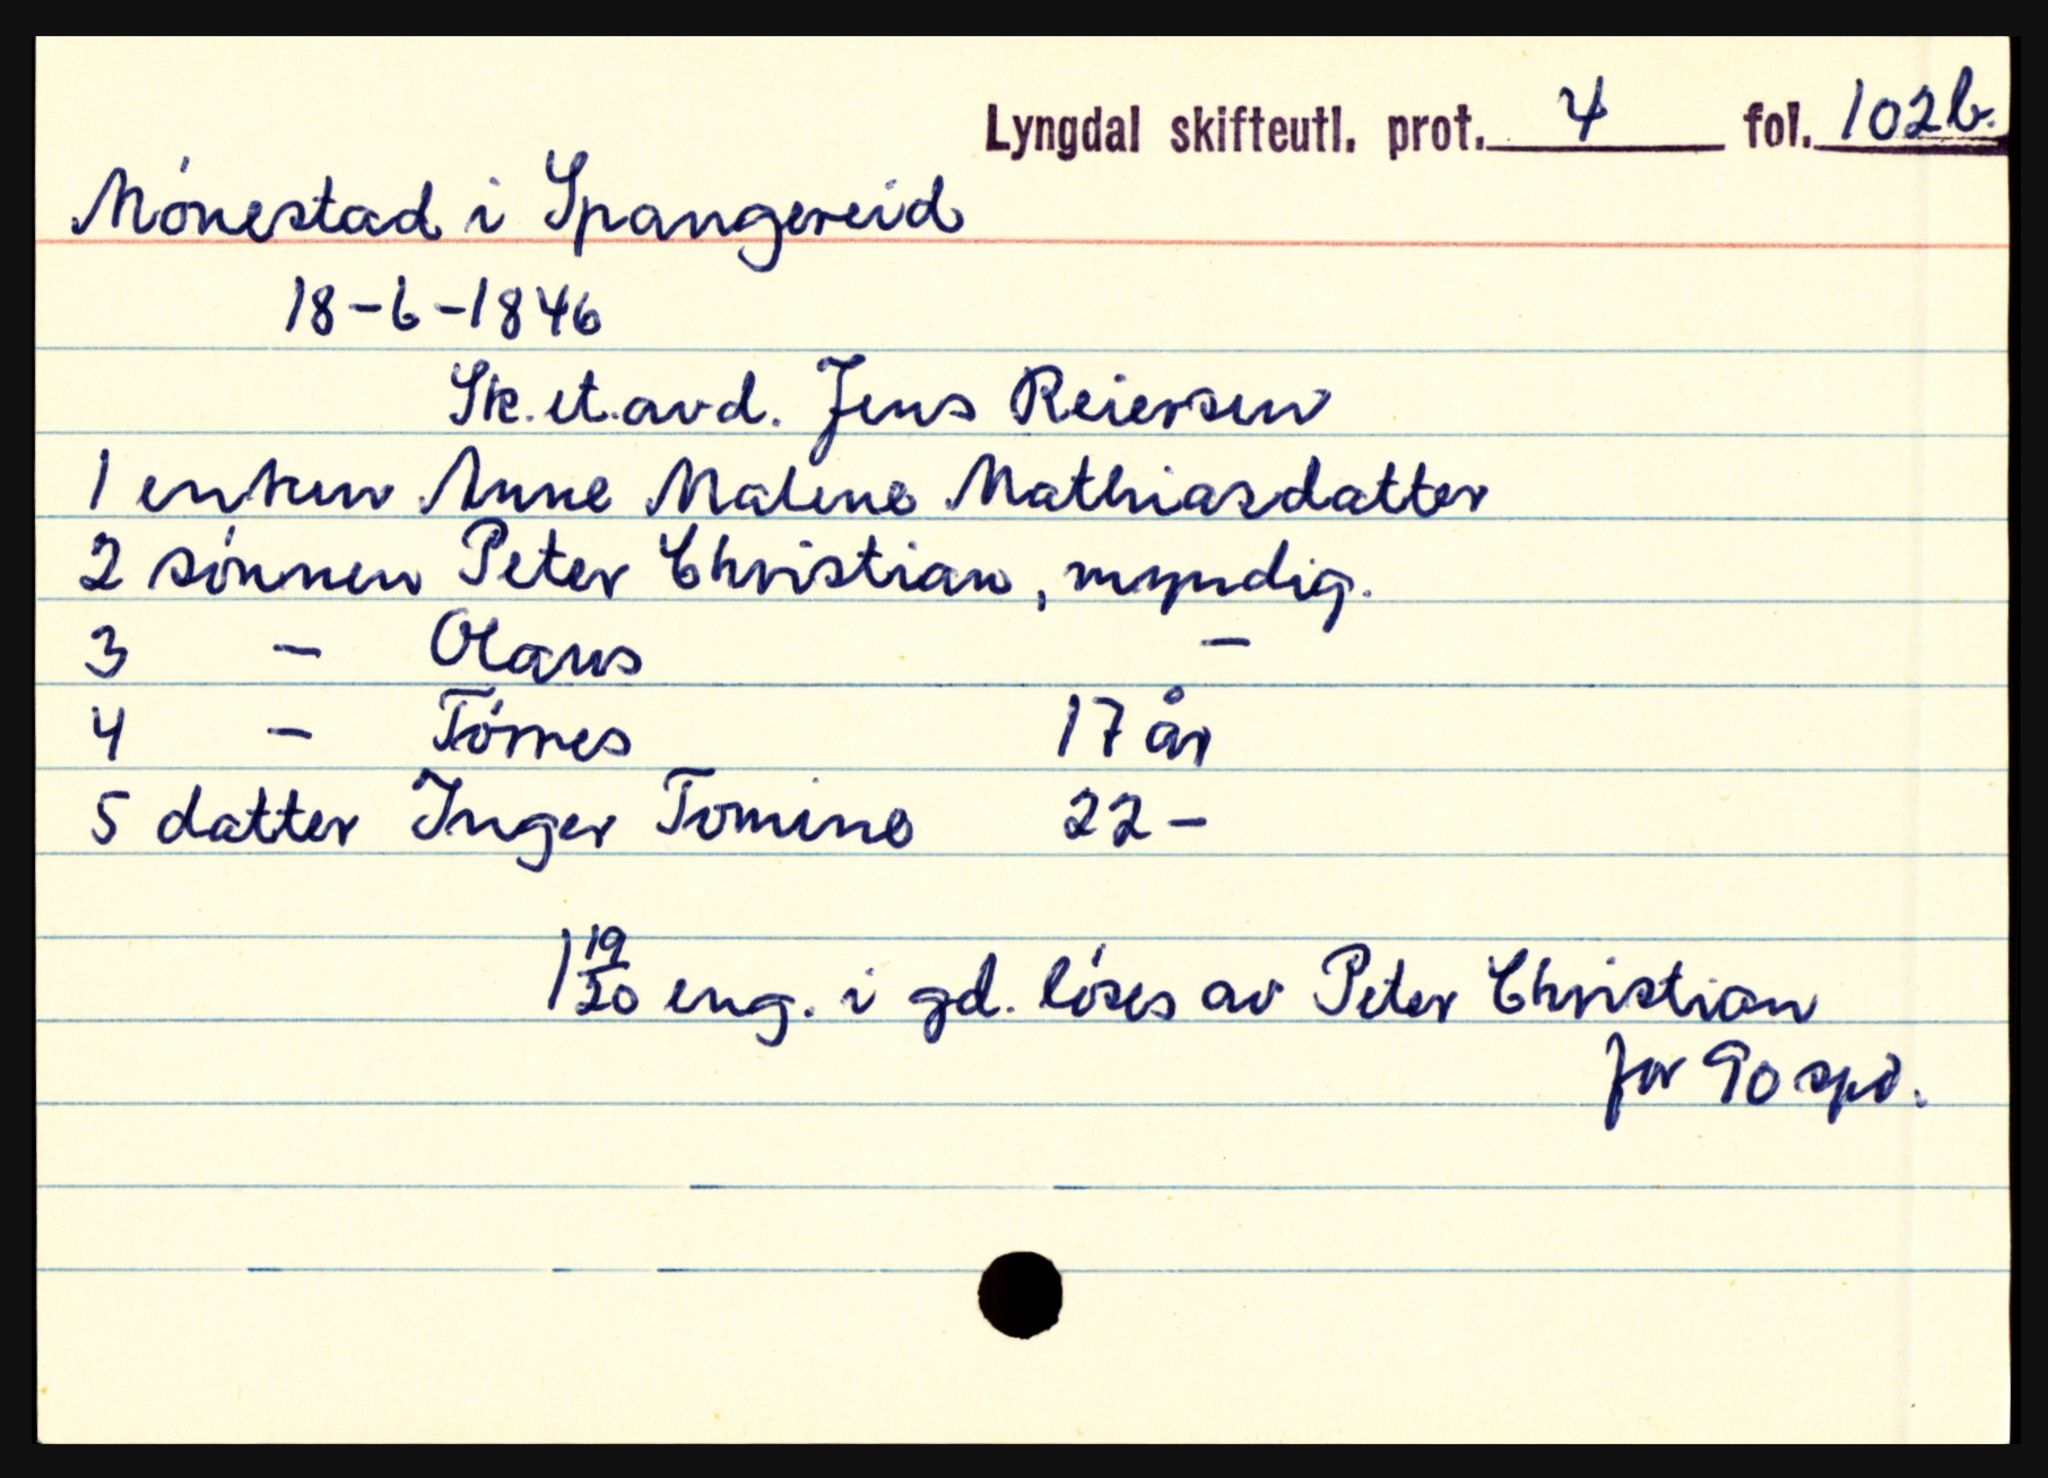 Lyngdal skifteutl. prot. 4 fol. 102b.
Mónestad i Spangereid
18-6-1846
Sk. et. avd. Jens Reiersen
1 enken Anne Malene Mathiasdatter
2 sónnen Peter Christian, myndig.
3 - Olaus -
4 - Tórres 17 år
5 datter Inger Tomine 22 -
1 19/20 eng. i gd. lóses av Peter Christian
for 90 spd.